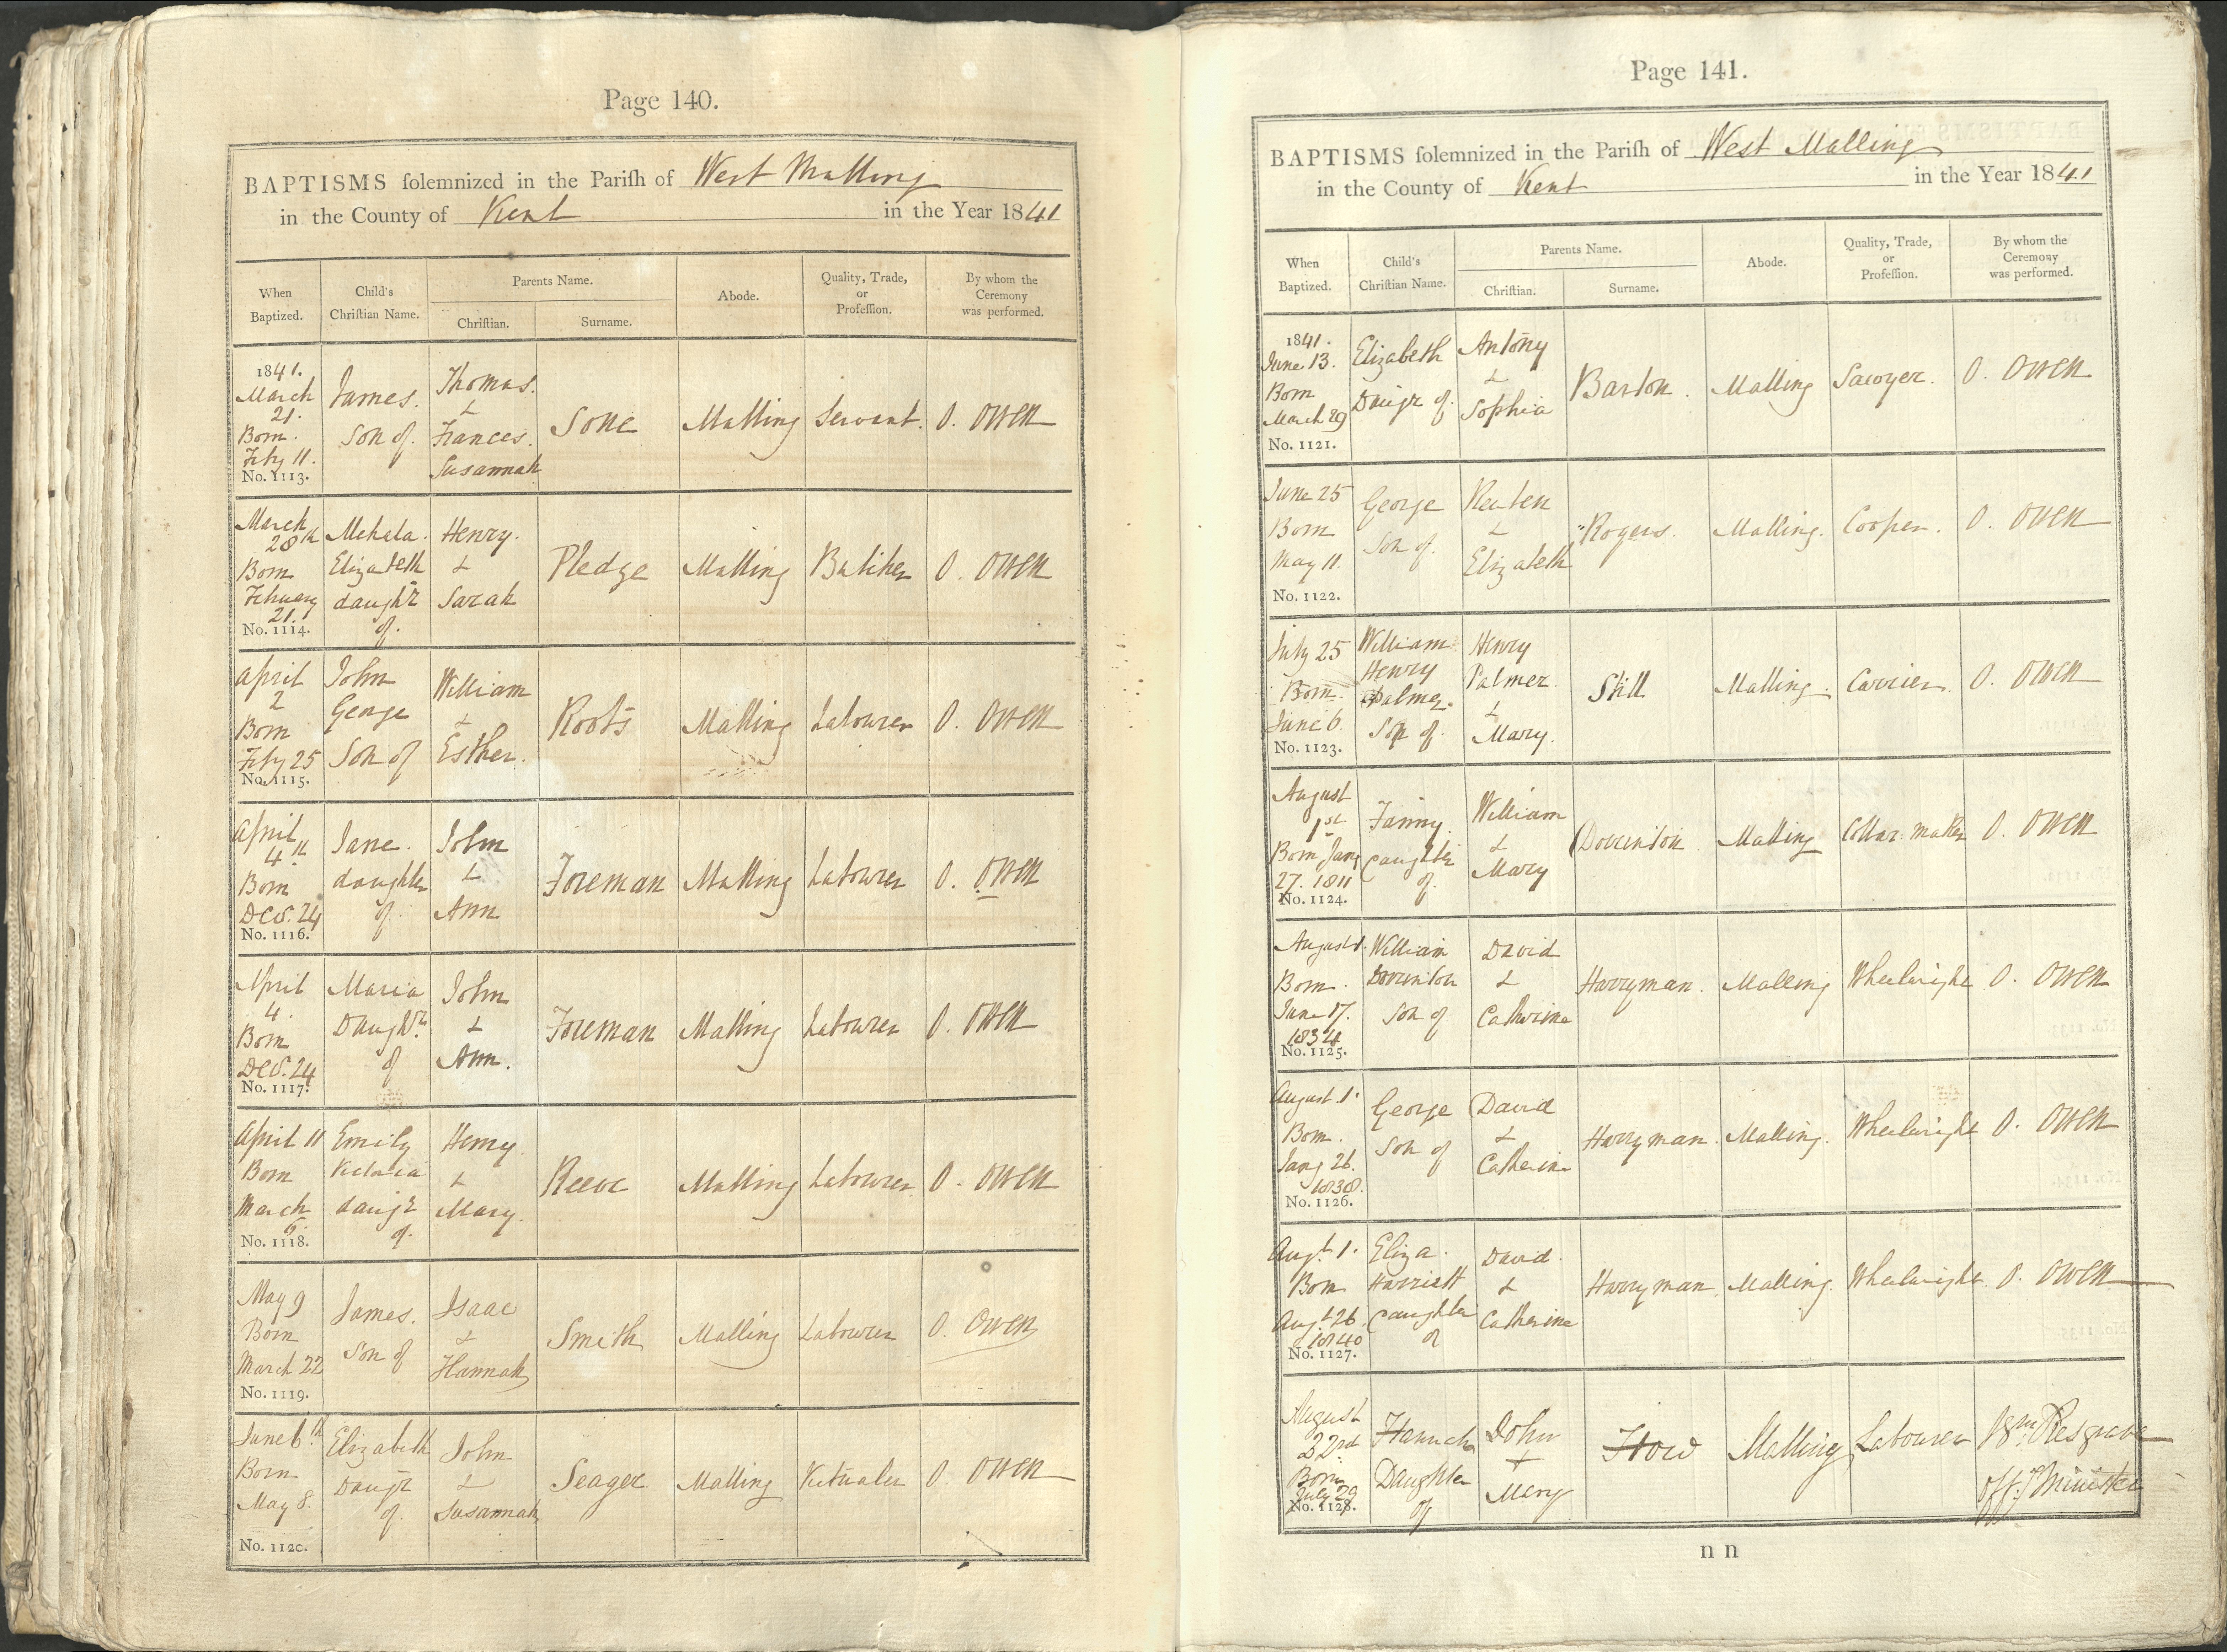 Page 140.
BAPTISMS solemnized in the Parish of West Malling
in the County of Kent in the Year 1841
When Baptized.
Child's Christian Name.
Parents Name.
Christian.
Surname.
Abode.
Quality, Trade, or Profession.
By whom the Ceremony was performed.
1841. March 21. Born. Feby 11. No. 1113.
James. Son of.
Thomas. & Frances. Susannah
Sone
Malling
Servant.
O. Owen
March 28th Born February 21. No. 1114.
Mehala. Elizabeth daughr of.
Henry. & Sarah
Pledge
Malling
Butcher
O. Owen
April 2 Born Feby 25 No. 1115.
John George Son of
William & Esther.
Roots
Malling
Labourer
O. Owen
April 4th Born Decr. 24 No. 1116.
Jane. daughter of.
John & Ann
Foreman
Malling
Labourer
O. Owen
April 4. Born Decr. 24 No. 1117.
Maria Daughtr. of
John & Ann.
Foreman
Malling
Labourer
O. Owen
April 11 Born March 6. No. 1118.
Emily Victoria daugr of.
Henry. & Mary.
Reeve
Malling
Labourer
O. Owen
May 9 Born March 22 No. 1119.
James. Son of
Isaac & Hannah
Smith
Malling
Labourer
O. Owen
June 6th Born May 8. No. 1120.
Elizabeth Daugr of.
John & Susannah
Seager
Malling
Victualer
O. Owen
Page 141.
BAPTISMS solemnized in the Parish of West Malling
in the County of Kent in the Year 1841
When Baptized.
Child's Christian Name.
Parents Name.
Christian.
Surname.
Abode.
Quality, Trade, or Profession.
By whom the Ceremony was performed.
1841. June 13. Born March 29 No. 1121.
Elizabeth Daugr of.
Antony & Sophia
Barton.
Malling
Sawyer.
O. Owen
June 25 Born May 11. No. 1122.
George Son of.
Reuben & Elizabeth
Rogers.
Malling.
Cooper.
O. Owen
July 25 Born. June 6 No. 1123.
William Henry Palmer. Son of.
Henry Palmer. & Mary.
Still
Malling.
Carrier.
O. Owen
August 1st Born Jany 27. 1811 No. 1124.
Fanny. Daughter of.
William & Mary
Dorrinton
Malling
Collar maker
O. Owen
August 1. Born. June 17. 1834 No. 1125.
William Dorrinton Son of
David & Catherine
Harryman.
Malling
Wheelwright
O. Owen
August 1. Born. Jany 26. 1838. No. 1126.
George Son of
David & Catherine
Harryman.
Malling.
Wheelwright
O. Owen
Augt. 1. Born Augt 26 1840 No. 1127.
Eliza. Harriett Daughter of
David. & Catherine
Harryman
Malling.
Wheelwright
O. Owen
August 22nd Born July 29 No. 1128.
Hannah Daughter of
John + Mary
How
Malling
Labourer
Wm.
Offg. Minister
n n